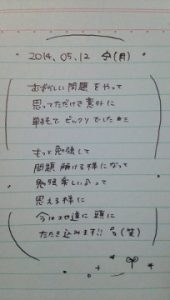 2014.05.12 (月)
むずかしい問題をやって
思ってただけで意外に
単純で ビックリでした
もっと勉強して
問題解ける様になって
勉強楽しいなって
思える様に
今は 地道に 頭に
たたき込みます!! (笑)